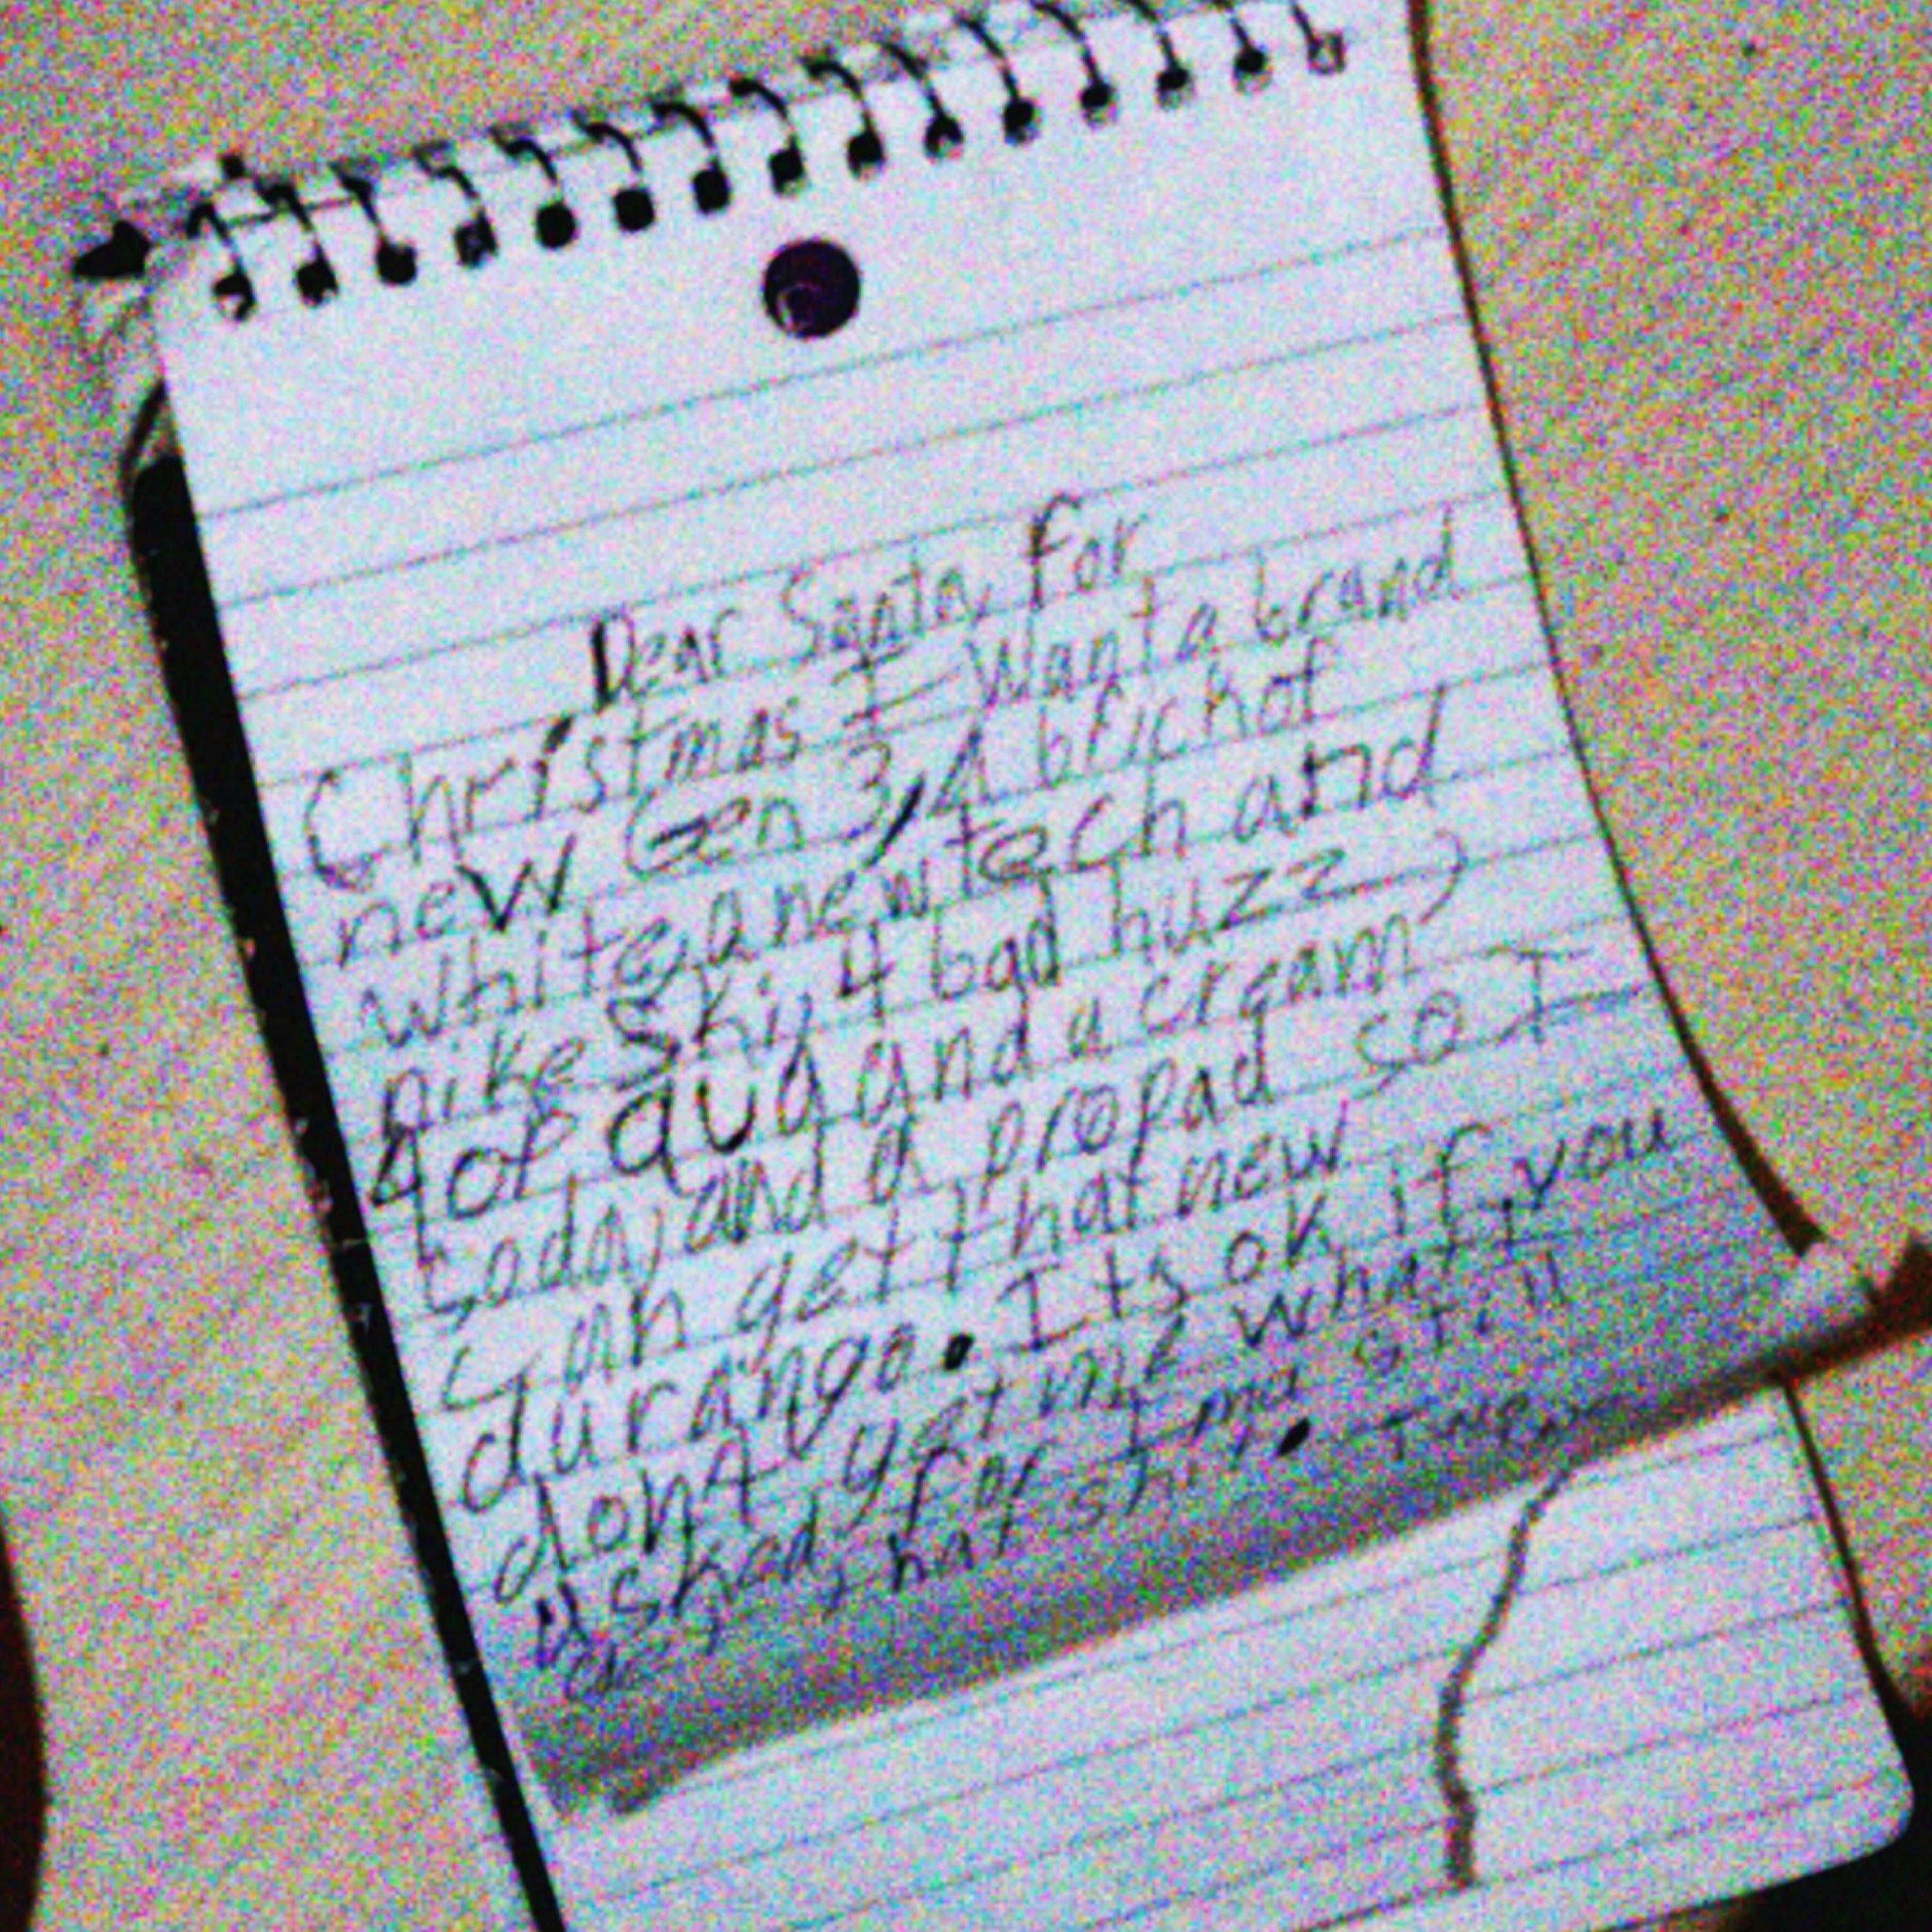 Dear Santa, For
Christmas I Want a brand
new Gen 3, A brick of
white, a new tech and
nike Skiy 4 bad huzz,
4 of aug and a cream,
and a propad so I
can get that new
durango. Its ok if you
dont get me what I
Asked for Ima still
that shit.